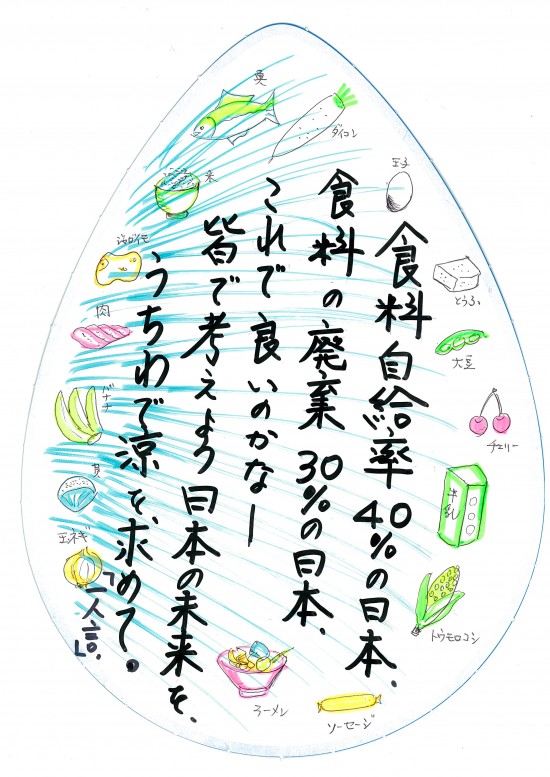 食料自給率40%の日本、
食料の廃棄30%の日本、
これで良いのかなー
皆で考えよう日本の未来を、
うちわで涼を、求めて。
「一人言」
魚
ダイコン
玉子
米
とうふ
ジャガイモ
大豆
肉
チェリー
バナナ
牛乳
貝
玉ネギ
トウモロコシ
ラーメン
ソーセージ